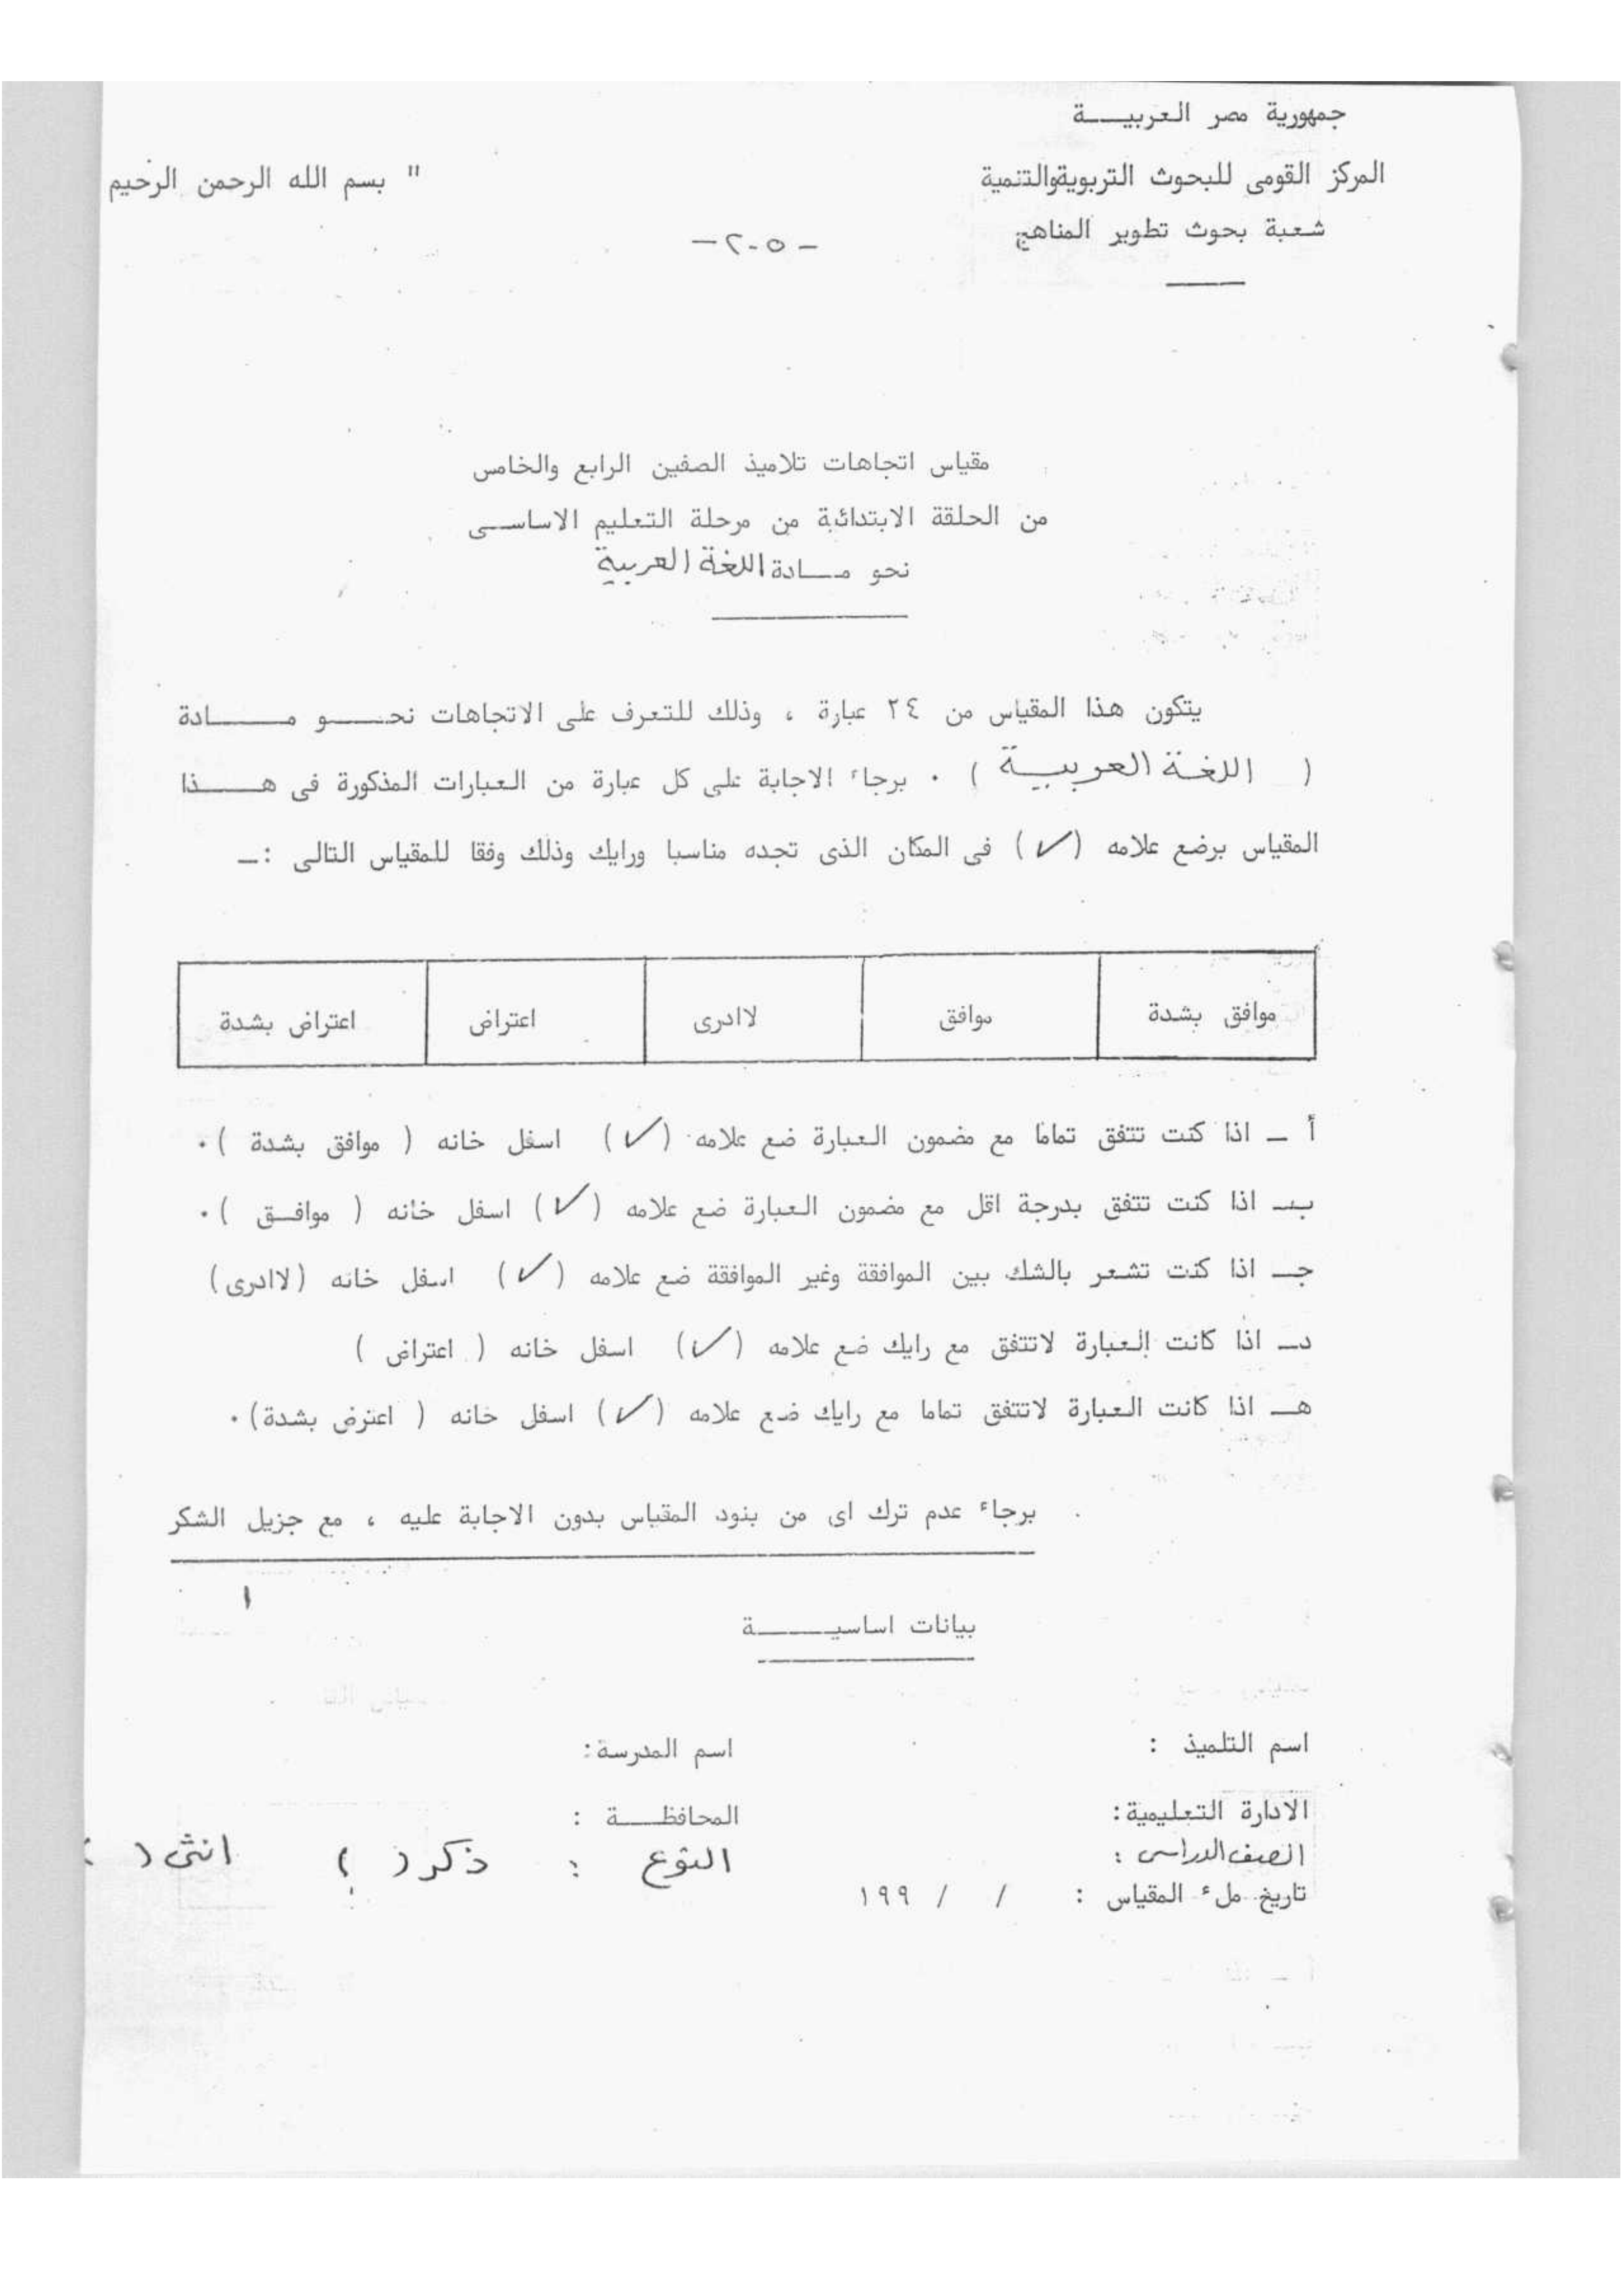 جمهورية مصر العربيـــة
المركز القومى للبحوث التربويةوالتنمية
" بسم الله الرحمن الرحيم
شعبة بحوث تطوير المناهج
- ٢٠٥ -
مقياس اتجاهات تلاميذ الصفين الرابع والخامس
من الحلقة الابتدائية من مرحلة التعليم الاساســى
نحو مــادة اللغة العربية
يتكون هذا المقياس من ٢٤ عبارة ، وذلك للتعرف على الاتجاهات نحــــو مــــــادة
( اللغة العربيــة ) . برجاء الاجابة على كل عبارة من العبارات المذكورة فى هــــذا
المقياس برضع علامه (✓) فى المكان الذى تجده مناسبا ورايك وذلك وفقا للمقياس التالى :ــ
موافق بشدة | موافق | لاادرى | اعتراض | اعتراض بشدة
أ ــ اذا كنت تتفق تماما مع مضمون العبارة ضع علامه (✓) اسفل خانه ( موافق بشدة ).
بــ اذا كنت تتفق بدرجة اقل مع مضمون العبارة ضع علامه (✓) اسفل خانه ( موافــق ).
جــ اذا كنت تشعر بالشك بين الموافقة وغير الموافقة ضع علامه (✓) اسفل خانه (لاادرى)
دــ اذا كانت العبارة لاتتفق مع رايك ضع علامه (✓) اسفل خانه ( اعتراض )
هــ اذا كانت العبارة لاتتفق تماما مع رايك ضع علامه (✓) اسفل خانه ( اعترض بشدة).
برجاء عدم ترك اى من بنود المقياس بدون الاجابة عليه ، مع جزيل الشكر
١
بيانات اساسيـــــة
اسم التلميذ : اسم المدرسة:
الادارة التعليمية: المحافظــة :
الصف الدراسى : النوع : ذكر ( ) انثى ( )
تاريخ ملء المقياس : / / ١٩٩